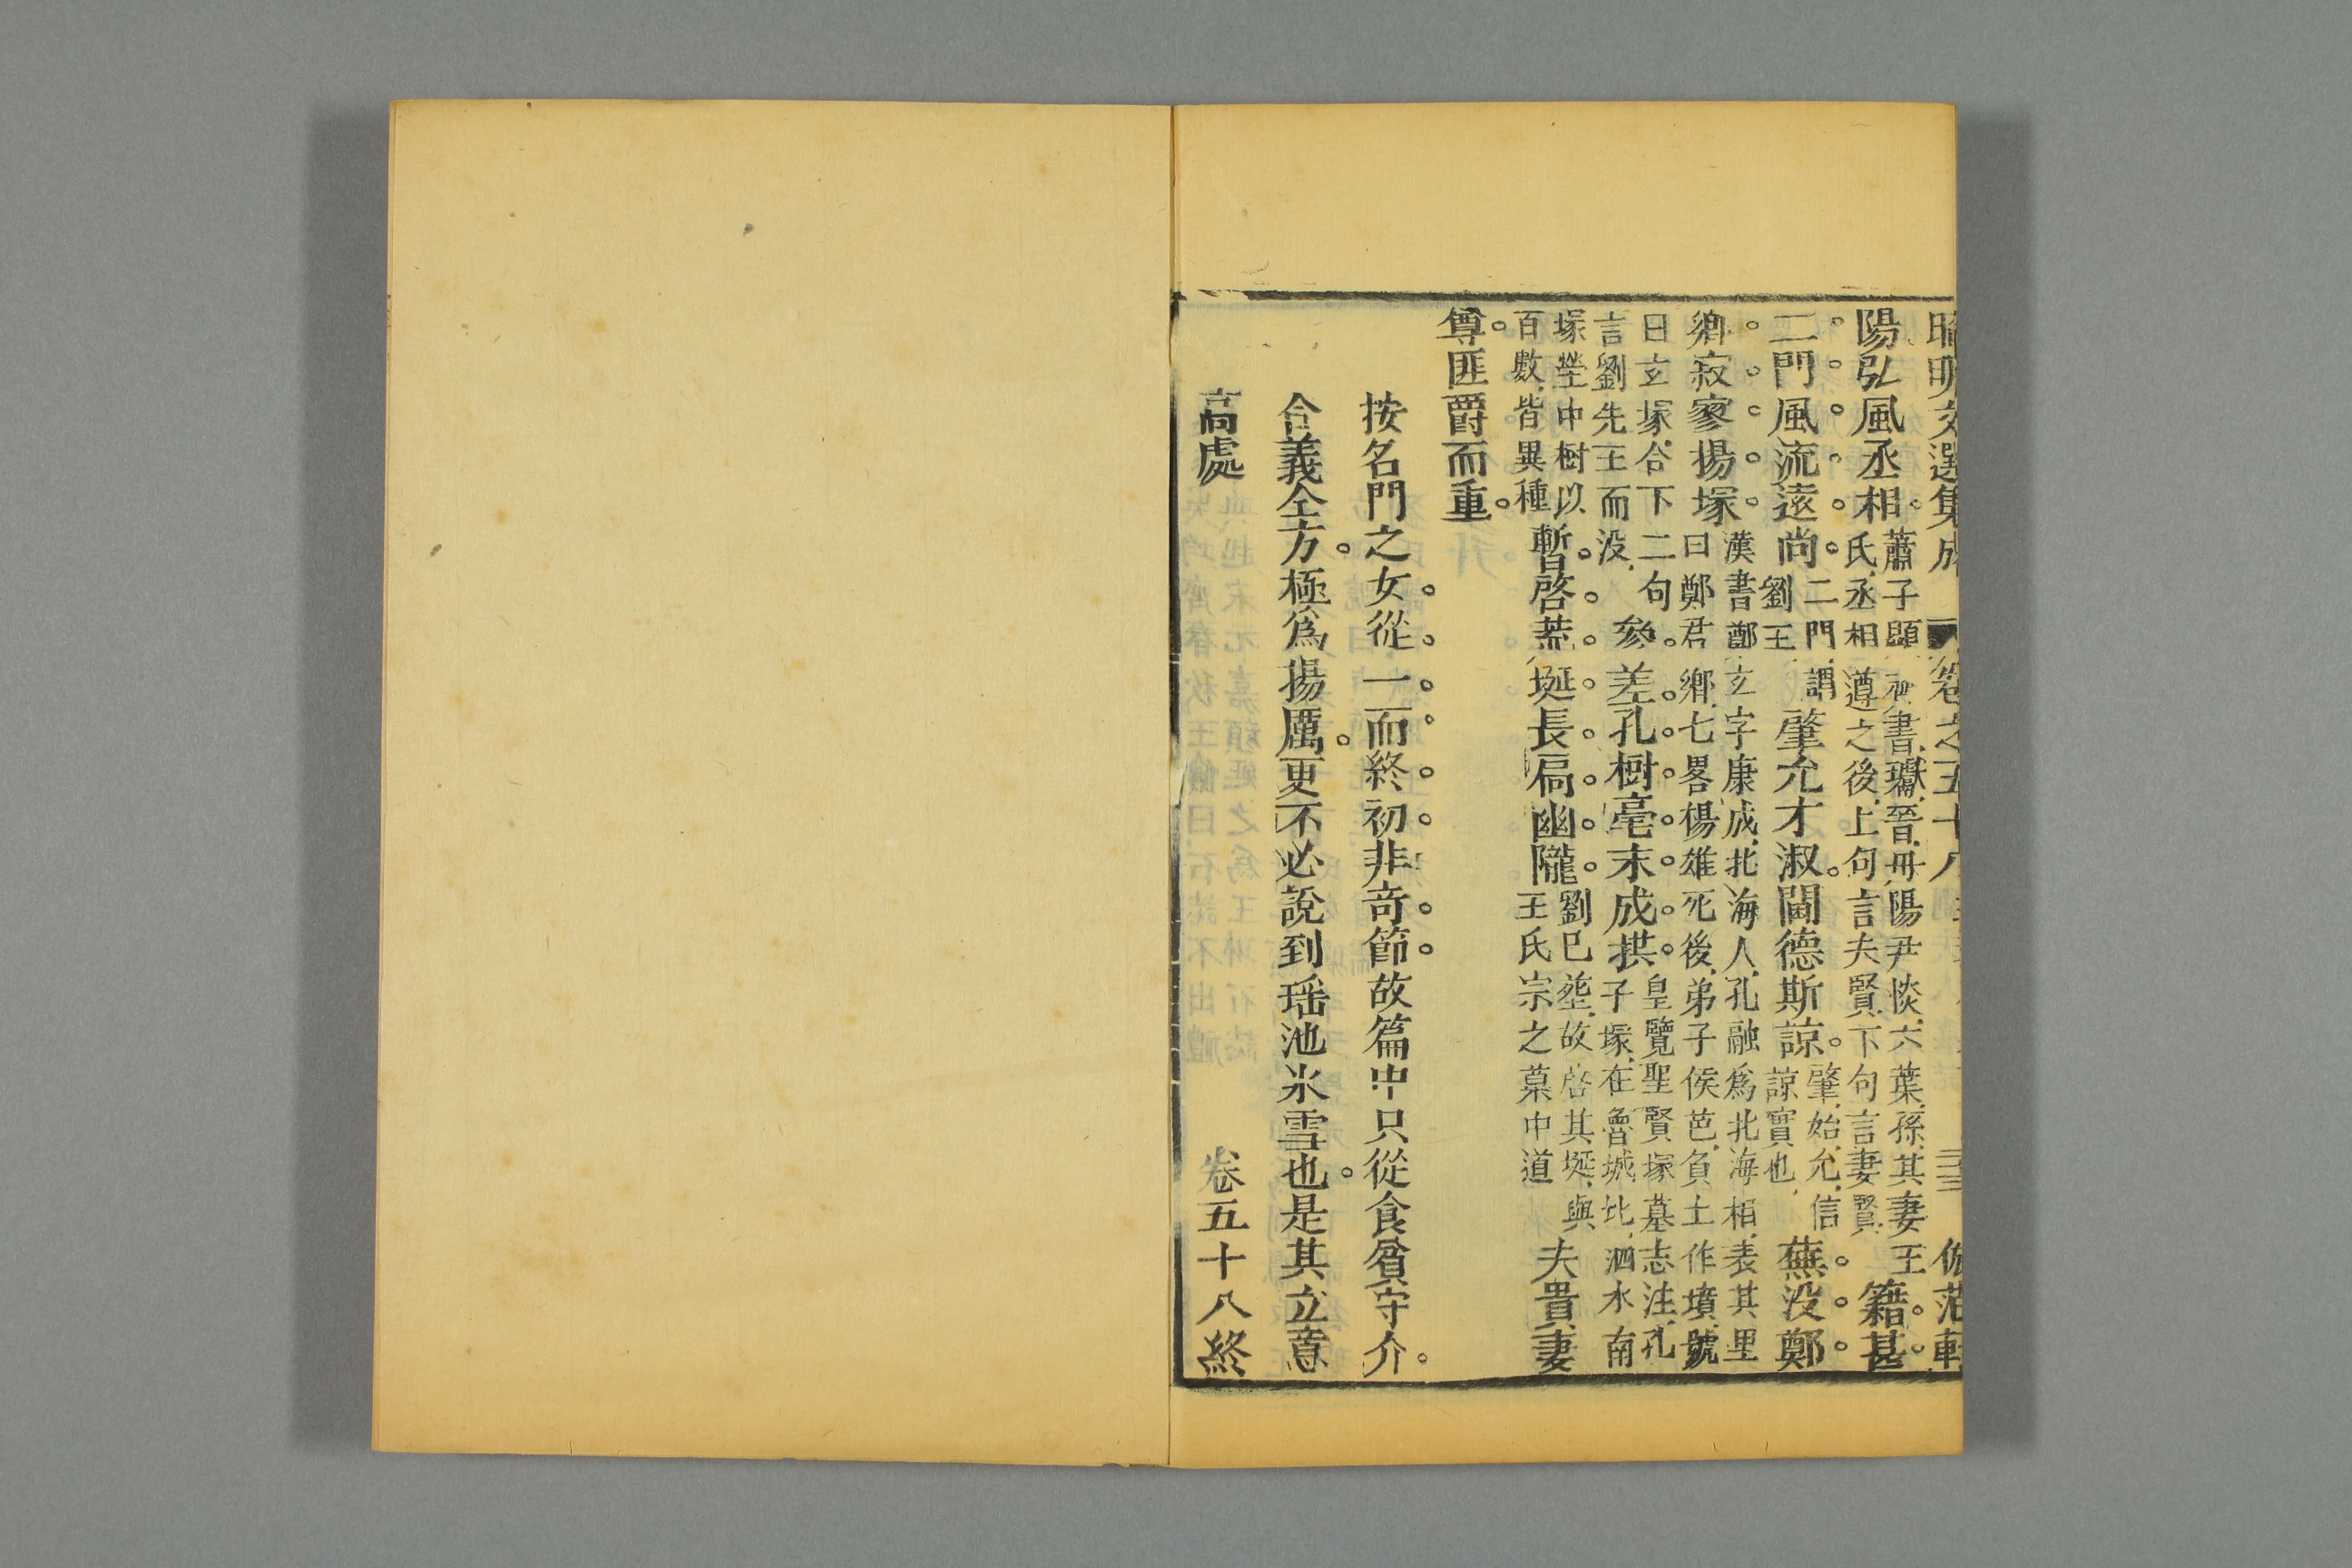 昭明文選集成 卷之五十八 三三 倣范軒
陽弘風丞相蕭子顯齊書瓛晉丹陽尹惔六葉孫其妻王氏丞相遵之後上句言夫賢下句言妻賢籍甚
二門風流遠尚二門謂劉王肇允才淑閫德斯諒肇始允信諒實也蕪没鄭
鄉寂寥揚塚漢書鄭玄字康成北海人孔融爲北海相表其里曰鄭君鄉七畧楊雄死後弟子侯芭負土作墳號
曰玄塚合下二句言劉先王而没參差孔樹毫末成拱皇覽聖賢塚墓志注孔子塚在魯城北泗水南
塚塋中樹以百數皆異種暫啓荒埏長扃幽隴劉巳塟故啓其埏與王氏宗之墓中道夫貴妻
尊匪爵而重
按名門之女從一而終初非奇節故篇中只從食貧守介
合義全方極爲揚厲更不必說到瑶池氷雪也是其立意
高處 卷五十八終